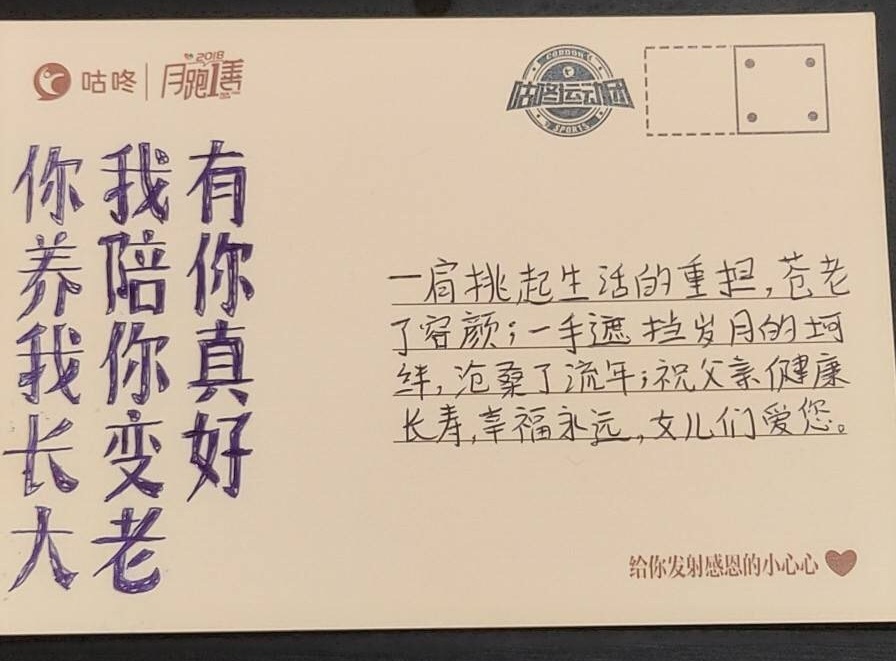 咕咚
2018
月跑1善
CODOON
咕咚运动团
SPORTS
你养我长大
我陪你变老
有你真好
一肩挑起生活的重担,苍老
了容颜;一手遮挡岁月的坷
绊,沧桑了流年;祝父亲健康
长寿,幸福永远,女儿们爱您。
给你发射感恩的小心心